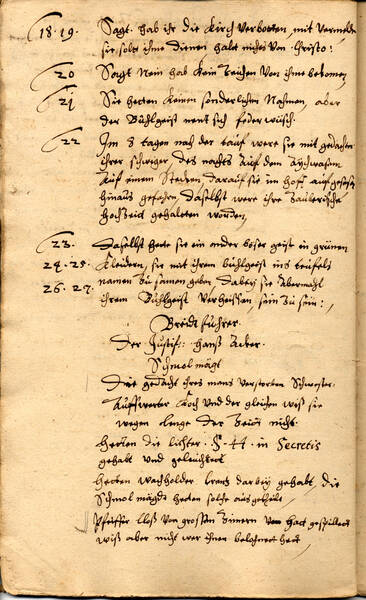 18. 19. Sagt. hab ihr die Kirch verbotten, mit vermelden
sie solte ihme dienen halt nichts von Christo:
20 Sagt Nein hab kein Zeichen von ihme bekomen,
21 Sie hetten keinen sonderlichen Nahmen, aber
der Buhlgeist nent sich federwüsch.
22 Im 8 tagen nach der tauf were sie mit gedachter
ihrer schwiger des nachts auf dem
auf einem Stecken, darauf sie im hoff aufgesessen
hinaus gefahren, daselbst were ihre Zauberische
Hochzeit gehaleten worden,
23. daselbst hette sie ein ander böser geist in grünen
24. 25. Kleidern, sie mit ihrem buhlgeist ins teufels
26. 27. namen zu samen geben, dabey sie Abermahl
ihrem Buhlgeist verheissen, sein zu sein:,
Breidt führer.
Der Justif: hanß Acker.
Schmol mägt
Die gedacht ihres mans verstorben Schwester.
Auffwerter Koch und der gleichen wiß sie
wegen lenge der Zeit nicht.
hetten die lichter. in Secretis
gehabt und geleuchtet
hetten wachholder darbey gehabt, die
Schmol mägdt hetten solche ausgetheilt
Pfeiffer von grossen Zinern gespillet
wiß aber nicht wer ihnen belohnet hett